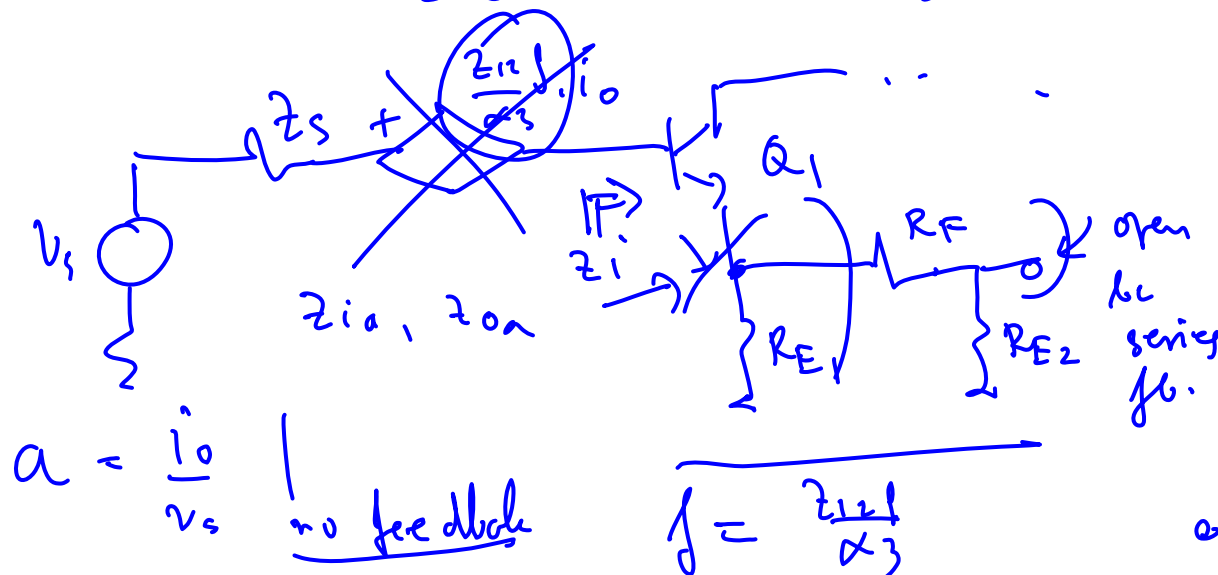 z12f/α3 · io
zs +
Q1
vs
|F>
zi
RF
open
bc
series
fb.
zia, zoa
RE1
RE2
a = io/vs | no feedback
f = z12f/α3